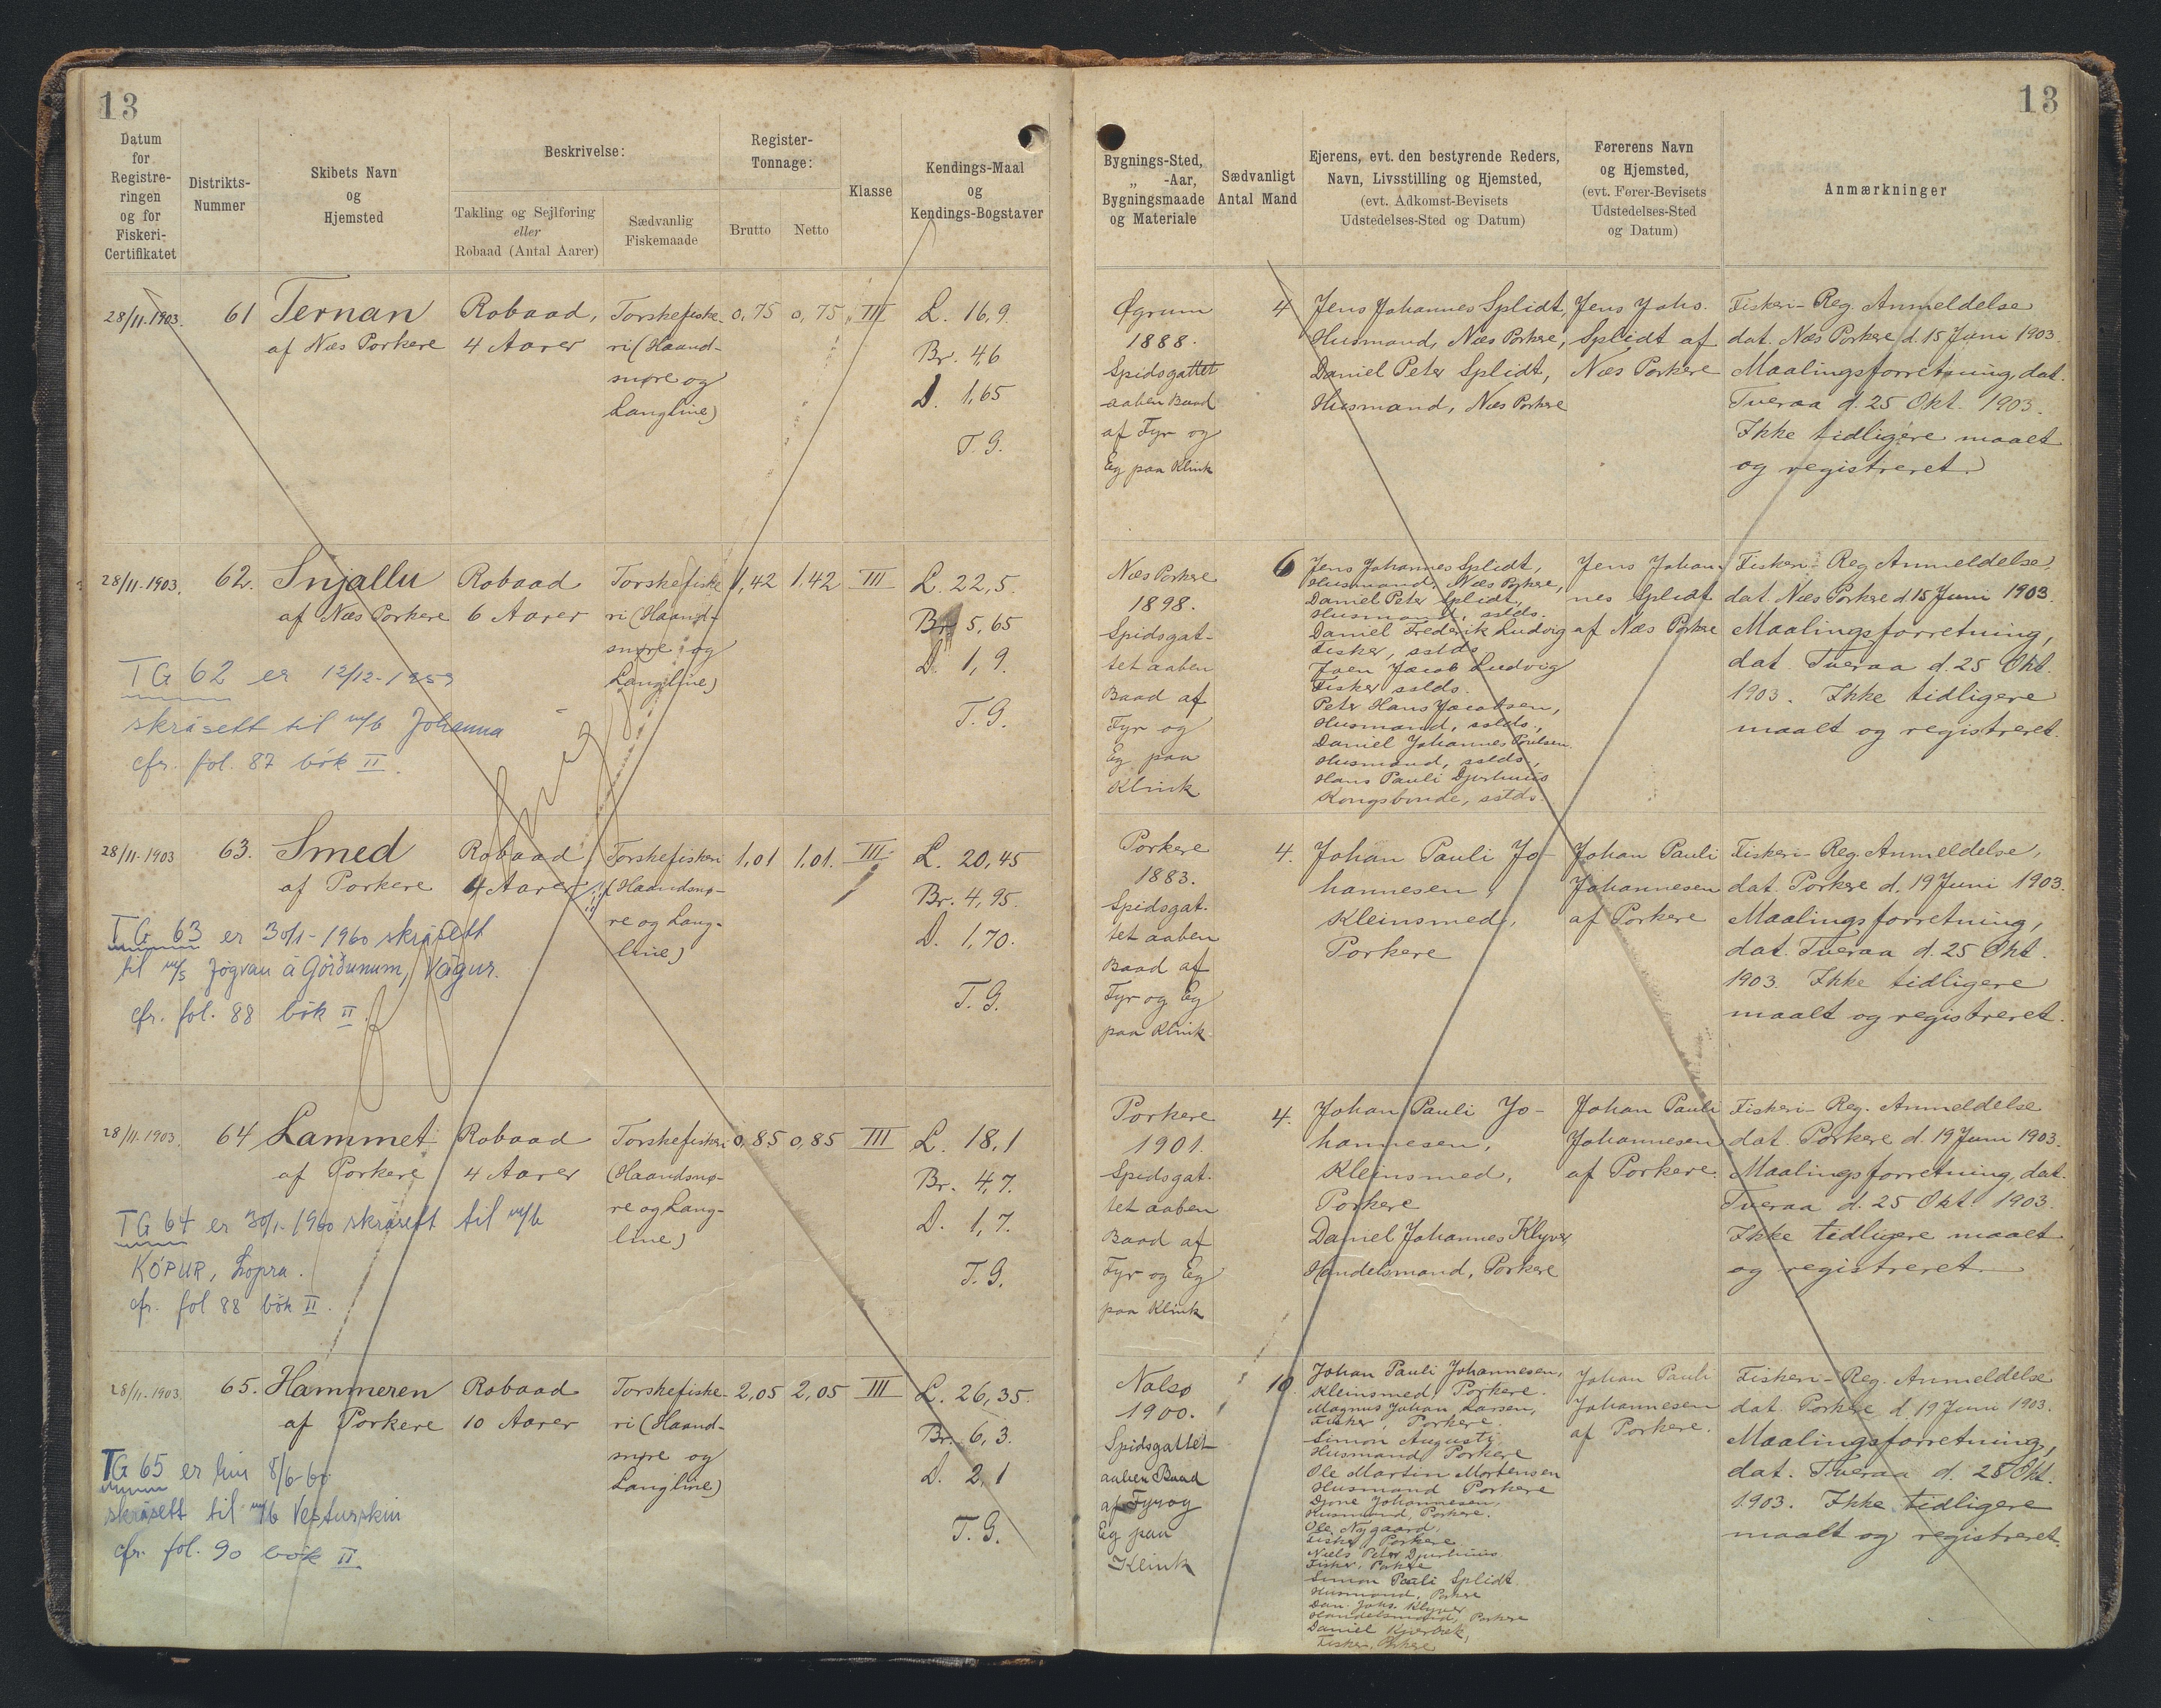 13
Datum
for
Registre-
ringen
og for
Fiskeri-
Certifikatet
Distrikts-
Nummer
Skibets Navn
og
Hjemsted
Beskrivelse:
Takling og Sejlføring
eller
Robaad (Antal Aarer)
Sædvanlig
Fiskemaade
Register-
Tonnage:
Brutto
Netto
Klasse
Kendings-Maal
og
Kendings-Bogstaver
28/11.1903.
61
Ternan
af Næs Porkere
Robaad,
4 Aarer
Torskefiske-
ri (Haand-
snøre og
Langline)
0,75
0,75
III
L. 16,9.
Br. 4,6
D. 1,65
T. G.
28/11.1903.
62.
Snjallu
af Næs Porkere
Robaad
6 Aarer
Torskefiske
ri (Haand-
snøre og
Langline)
1,42
1,42
III
L. 22,5.
Br. 5,65
D. 1,9.
T. G.
TG 62 er 12/12-1959
skrásett til m/b Johanna
cfr. fol. 87 bók II.
28/11.1903
63.
Smed
af Porkere
Robaad
4 Aarer
Torskefiskeri
(Haandsnø-
re og Lang-
line)
1,01
1,01.
III
L. 20,45
Br. 4,95.
D. 1,70.
T. G.
TG 63 er 30/1-1960 skrásett
til m/s Jógvan á Görðunum, Vágur.
cfr. fol. 88 bók II.
28/11.1903.
64
Lammet
af Porkere
Robaad
4 Aarer
Torskefiskeri
(Haandsnø-
re og Lang-
line)
0,85
0,85
III
L. 18,1
Br. 4,7.
D. 1,7.
T. G.
TG 64 er 30/1-1960 skrásett til m/b
KÓPUR, Lopra.
cfr. fol 88 bók II.
28/11.1903
65.
Hammeren
af Porkere
Robaad
10 Aarer
Torskefiske-
ri (Haand-
snøre og
Langline)
2,05
2,05
III
L. 26,35.
Br. 6,3.
D. 2,1
T. G.
TG 65 er hin 8/6-60
skrásett til m/b Vesturskin
cfr. fol. 90 bók II
13
Bygnings-Sted,
„ -Aar,
Bygningsmaade
og Materiale
Sædvanligt
Antal Mand
Ejerens, evt. den bestyrende Reders,
Navn, Livsstilling og Hjemsted,
(evt. Adkomst-Bevisets
Udstedelses-Sted og Datum)
Førerens Navn
og Hjemsted,
(evt. Fører-Bevisets
Udstedelses-Sted
og Datum)
Anmærkninger
Øgrum
1888.
Spidsgattet
aaben Baad
af Fyr og
Eg paa Klink
4
Jens Johannes Splidt,
Husmand, Næs Porkere,
Daniel Peter Splidt,
Husmand, Næs Porkere
Jens Johs.
Splidt af
Næs Porkere
Fiskeri-Reg. Anmeldelse
dat. Næs Porkere d. 15 Juni 1903.
Maalingsforretning, dat.
Tveraa d. 25 Okt. 1903.
Ikke tidligere maalt
og registreret.
Næs Porkere
1898.
Spidsgat-
tet aaben
Baad af
Fyr og
Eg paa
Klink
6
Jens Johannes Splidt,
Husmand, Næs Porkere,
Daniel Peter Splidt,
Husmand, sstds.
Daniel Frederik Ludvig
Fisker, sstds
Joen Jacob Ludvig
Fisker sstds.
Peter Hans Jacobsen,
Husmand, sstds.,
Daniel Johannes Poulsen.
Husmand, sstds.,
Hans Pauli Djurhuus
Kongsbonde, sstds.
Jens Johan
nes Splidt
af Næs Porkere
Fiskeri-Reg Anmeldelse,
dat. Næs Porkere d 15 Juni 1903.
Maalingsforretning,
dat. Tveraa d. 25 Okt.
1903. Ikke tidligere
maalt og registreret.
Porkere
1883.
Spidsgat-
tet aaben
Baad af
Fyr og Eg
paa Klink.
4.
Johan Pauli Jo-
hannesen,
Kleinsmed,
Porkere
Johan Pauli
Johannesen
af Porkere
Fiskeri-Reg. Anmeldelse,
dat. Porkere d. 19 Juni 1903.
Maalingsforretning,
dat. Tveraa d. 25 Okt.
1903. Ikke tidligere
maalt og registreret.
Porkere
1901.
Spidsgat-
tet aaben
Baad af
Fyr og Eg
paa Klink
4.
Johan Pauli Jo-
hannesen,
Kleinsmed,
Porkere
Daniel Johannes Klyver,
Handelsmand, Porkere
Johan Pauli
Johannesen
af Porkere.
Fiskeri-Reg. Anmeldelse
dat. Porkere d. 19 Juni 1903.
Maalingsforretning, dat.
Tveraa d. 25 Okt. 1903.
Ikke tidligere maalt
og registreret.
Nolsø
1900.
Spidsgattet
aaben Baad
af Fyr og
Eg paa
Klink
10.
Johan Pauli Johannesen,
Kleinsmed, Porkere.
Magnus Johan Larsen,
Fisker, Porkere.
Simon Augusti
Husmand Porkere
Ole Martin Mortensen
Husmand Porkere
Djone Johannesen,
Husmand, Porkere.
Ole Nygaard,
Fisker Porkere
Niels Peter Djurhuus
Fisker, Porkere
Simon Pauli Splidt
Husmand, Porkere
Dan. Johs. Klyver
Handelsmand, Porkere
Daniel Kjærbæk,
Fisker, Porkere
Johan Pauli
Johannesen
af Porkere.
Fiskeri-Reg. Anmeldelse
dat. Porkere d. 19 Juni 1903.
Maalingsforretning,
dat. Tveraa d. 28 Okt.
1903. Ikke tidligere
maalt og registreret.